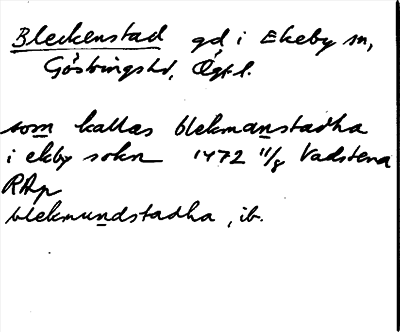 Bleckenstad gd, i Ekeby sn,
Göstringshd, Ögtl.
som kallas blekmanstadha
i ekby sokn 1472 11/8 Vadstena
RAp
blekmundstadha, ib.